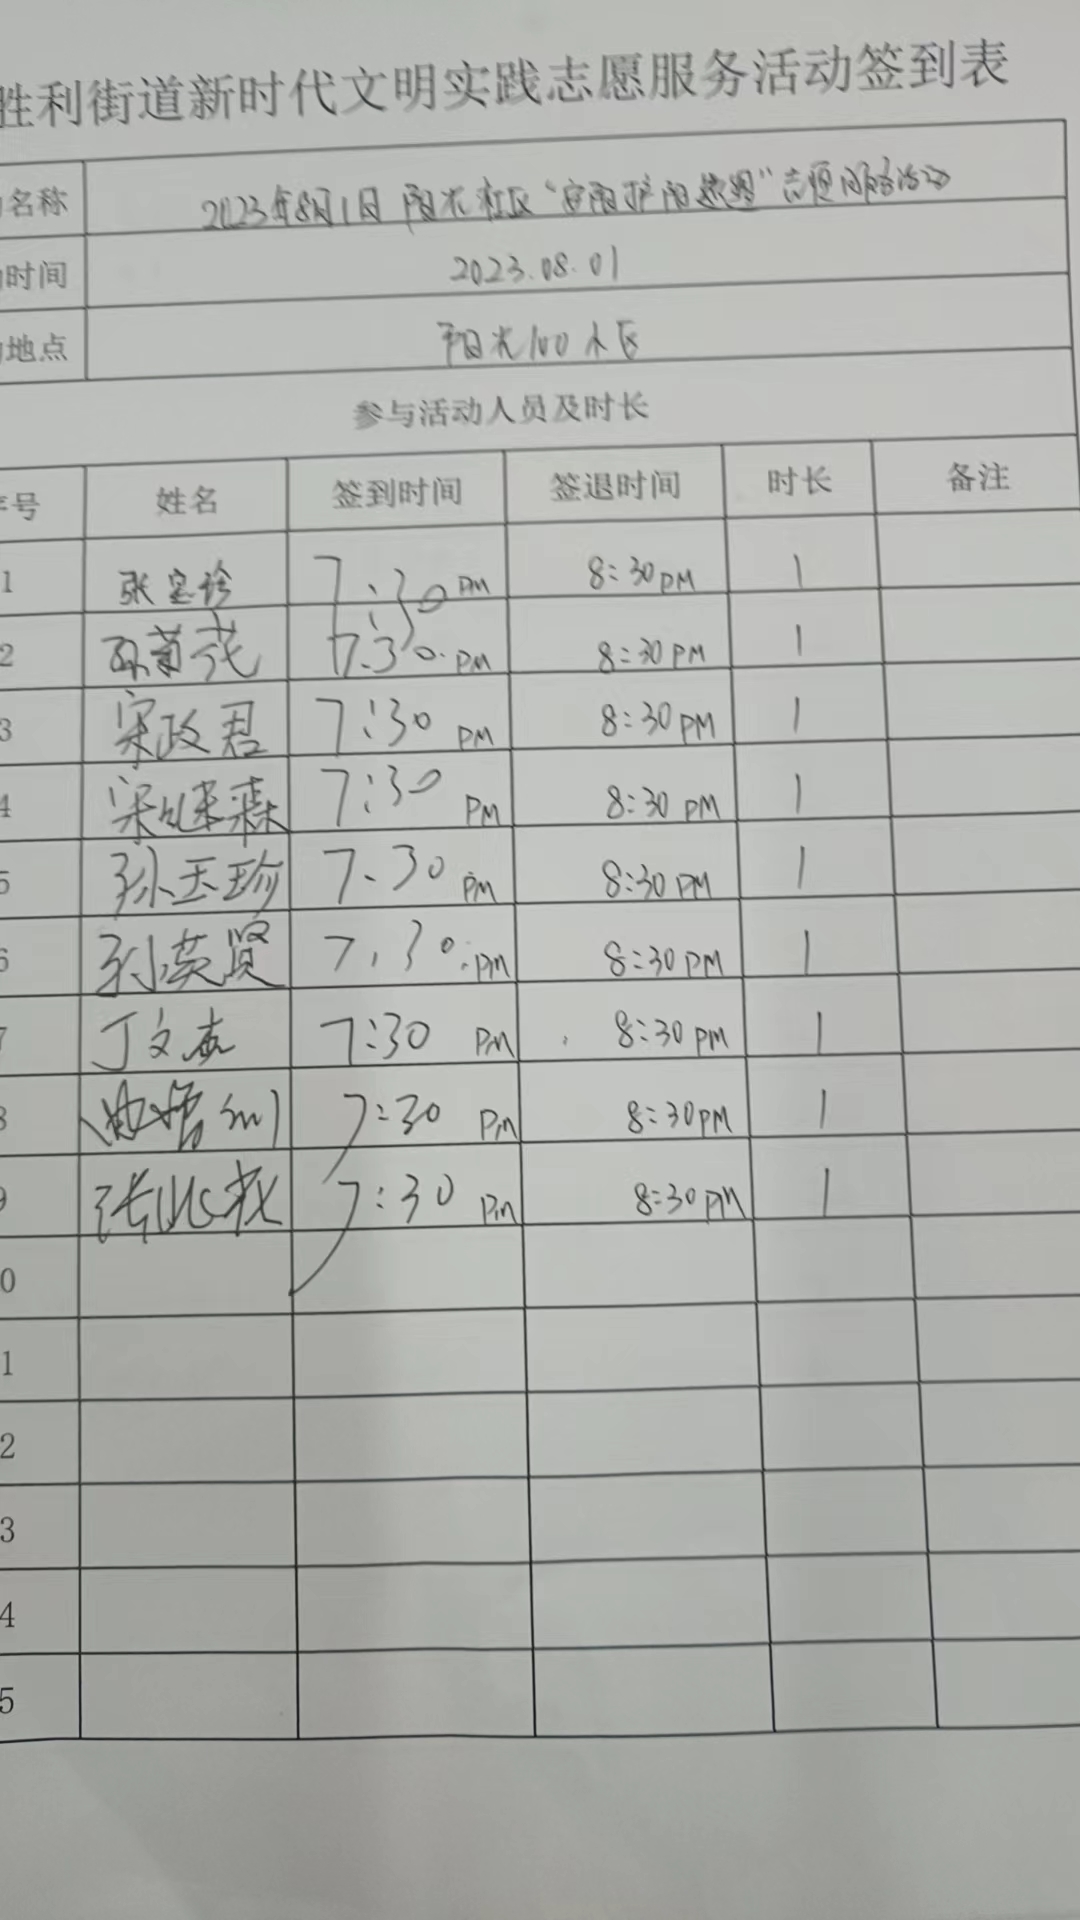 胜利街道新时代文明实践志愿服务活动签到表
名称 2023年8月1日 阳光社区“ ”志愿服务活动
时间 2023.08.01
地点 阳光100小区
参与活动人员及时长
序号 姓名 签到时间 签退时间 时长 备注
1 张宝珍 7:30 PM 8:30PM 1
2 7:30 PM 8:30PM 1
3 宋政君 7:30 PM 8:30PM 1
4 7:30 PM 8:30PM 1
5 孙玉珍 7.30 PM 8:30PM 1
6 孙英贤 7.30 PM 8:30PM 1
7 丁文 7:30 PM 8:30PM 1
8 7:30 PM 8:30PM 1
9 张 7:30 PM 8:30PM 1
0
1
2
3
4
5